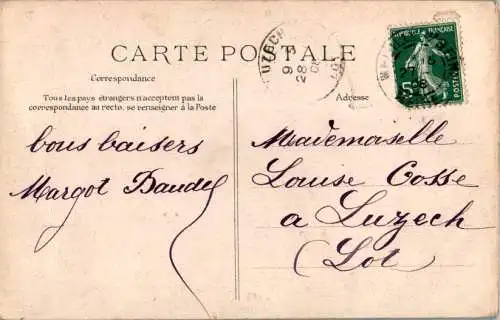 CARTE POSTALE
RÉPUBLIQUE FRANÇAISE
LUZECH
9
28
Correspondance
Tous les pays étrangers n'acceptent pas la
correspondance au recto, se renseigner à la Poste
Adresse
bons baisers
Margot
Mademoiselle
Louise Cosse
a Luzech
(Lot)